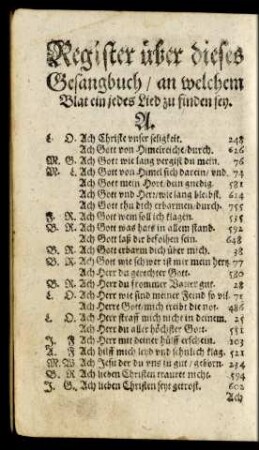 Register über dieses
Gesangbuch / an welchem
Blat ein jedes Lied zu finden sey.
A.
L. O. Ach Christe unser seligkeit. 248
Ach Gott von Himelreiche/durch. 626
M. G. Ach Gott wie lang vergist du mein. 76
M. L. Ach Gott von Himel sich darein/ vnd. 74
Ach Gott mein Hort/ 581
Ach Gott vnd Herr/ wie lang bleibst. 614
Ach Gott thu dich erbarmen/durch. 755
J. R. Ach Gott wem soll ich klagen. 535
B. R. Ach Gott was hats in allem stand. 592
Ach Gott laß dir befohlen sein. 648
B. R. Ach Gott erbarm dich über mich. 38
B. R. Ach Gott wie schwer ist mir mein herz. 77
Ach Herr du gerechter Gott. 580
B. R. Ach Herr du frommer Vatter gut. 28
L. O. Ach Herr wie sind meiner Feind so vil. 71
Ach Herre Gott/ mich treibt die not. 486
L. O. Ach Herr straff mich nicht in deinem. 25
Ach Herr du aller höchster Gott. 531
J. F Ach Herr mit deiner hülff erschein. 103
A. F Ach hilff mich leyd vnd sehnlich klag. 521
M. W. Ach Jesu der du vns zu gut/ geborn. 254
B. R Ach lieben Christen trauret nicht. 594
J. G. Ach lieben Christen seyt getrost. 602
Ach